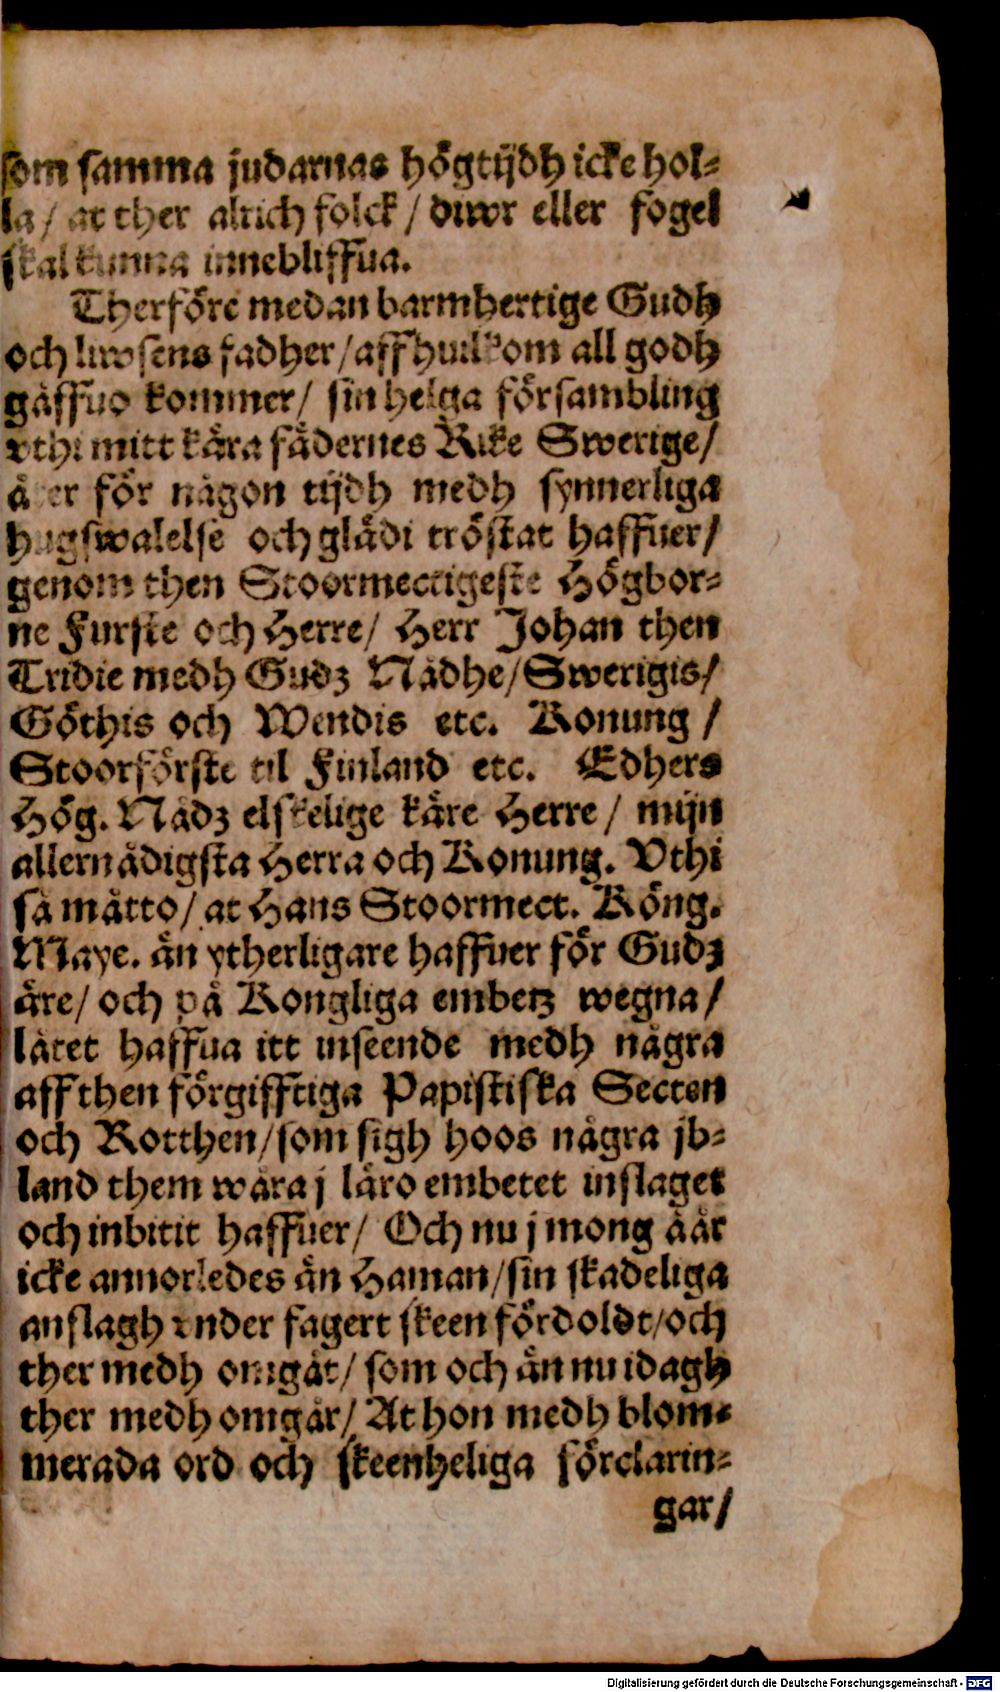 som samma judarnas högtijdh icke hol-
la / at ther alrich folck / diwr eller fogel
skal kunna innebliffua.
Therföre medan barmhertige Gudh
och liwsens fadher / aff huilkom all godh
gåffuo kommer / sin helga försambling
vthi mitt kära fädernes Rike Swerige /
åter för någon tijdh medh synnerliga
hugswalelse och glädi tröstat haffuer /
genom then Stoormectigeste Högbor-
ne Furste och Herre / Herr Johan then
Tridie medh Gudz Nådhe / Swerigis /
Göthis och Wendis etc. Konung /
Stoorförste til Finland etc. Edhers
Hög. Nådz elskelige käre Herre / mijn
allernådigsta Herra och Konung. Vthi
så måtto / at Hans Stoormect. Köng.
Maye. än ytherligare haffuer för Gudz
äre / och på Kongliga embetz wegna /
låtet haffua itt inseende medh några
aff then förgifftiga Papistiska Secten
och Rotthen / som sigh hoos några jb-
land them wåra j läro embetet inslaget
och inbitit haffuer / Och nu j mong åår
icke annorledes än Haman / sin skadeliga
anslagh vnder fagert skeen fördoldt / och
ther medh omgåt / som och än nu idagh
ther medh omgår / At hon medh blom-
merada ord och skeenheliga förclarin-
gar /
Digitalisierung gefördert durch die Deutsche Forschungsgemeinschaft - DFG